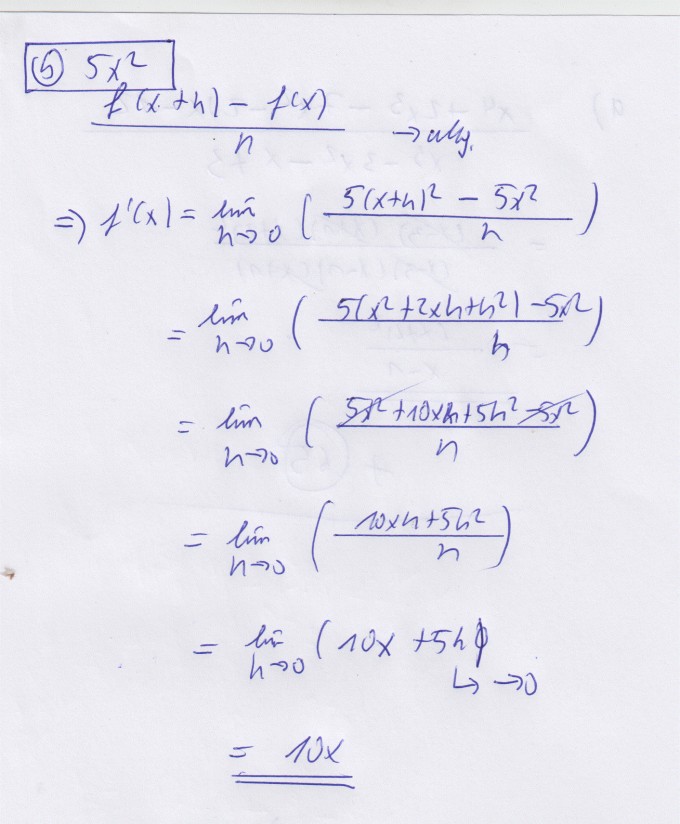 (b) 5x²
f(x+h) - f(x) / h → allg.
⇒ f'(x) = lim h→0 ( 5(x+h)² - 5x² / h )
= lim h→0 ( 5(x²+2xh+h²) - 5x² / h )
= lim h→0 ( 5x²+10xh+5h² - 5x² / h )
= lim h→0 ( 10xh+5h² / h )
= lim h→0 ( 10x + 5h )
↳ → 0
= 10x